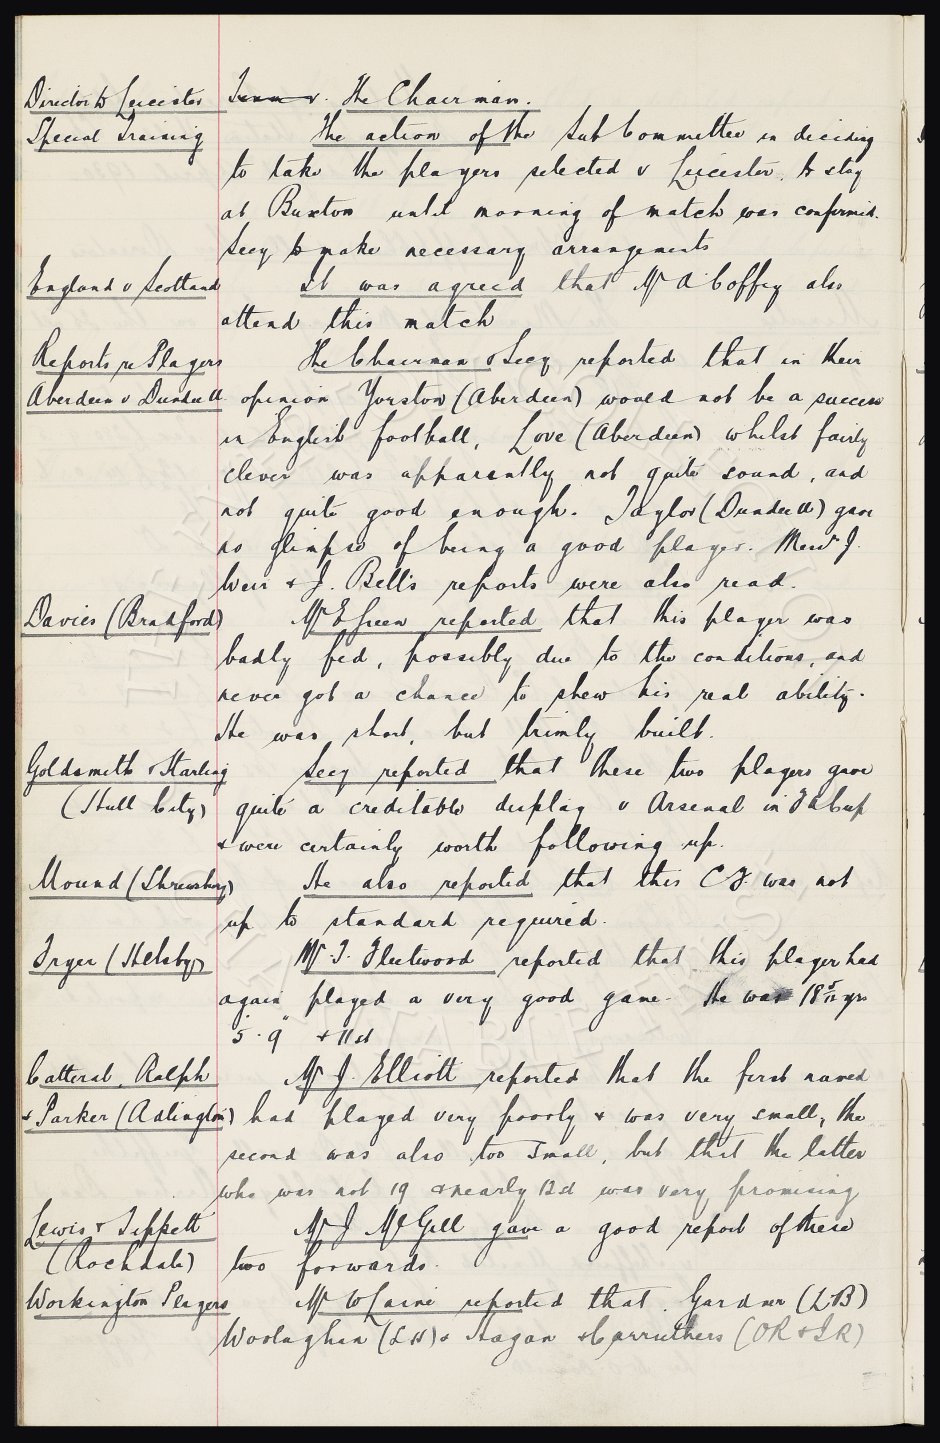 Director to Leicester Team v. The Chairman.
Special Training The action of the Sub Committee in deciding
to take the players selected v Leicester, to stay
at Buxton until morning of match was confirmed.
Secy to make necessary arrangements
England v Scotland It was agreed that Mr A Coffey also
attend this match
Reports re Players The Chairman & Secy reported that in their
Aberdeen v Dundee U. opinion Yorston (Aberdeen) would not be a success
in English football, Love (Aberdeen) whilst fairly
clever was apparently not quite sound, and
not quite good enough. Taylor (Dundee U) gave
no glimpse of being a good player. Messrs J.
Weir & J. Bell's reports were also read.
Davies (Bradford) Mr E Green reported that this player was
badly fed, possibly due to the conditions, and
never got a chance to shew his real ability.
He was short, but trimly built.
Goldsmith & Starling Secy reported that these two players gave
(Hull City) quite a creditable display v Arsenal in FA Cup
& were certainly worth following up.
Mound (Shrewsbury) He also reported that this C.F. was not
up to standard required.
Fryer (Helsby) Mr T. Fleetwood reported that this player had
again played a very good game. He was 18 5/12 yrs
5' 9" & 11st
Catteral, Ralph Mr J. Elliott reported that the first named
& Parker (Adlington) had played very poorly & was very small, the
second was also too small, but that the latter
who was not 19 & nearly 12st was very promising
Lewis & Tippett Mr J McGill gave a good report of these
(Rochdale) two forwards.
Workington Players Mr W Caine reported that Gardner (LB)
Woolaghan (LH) & Hagan & Carruthers (OR & IR)